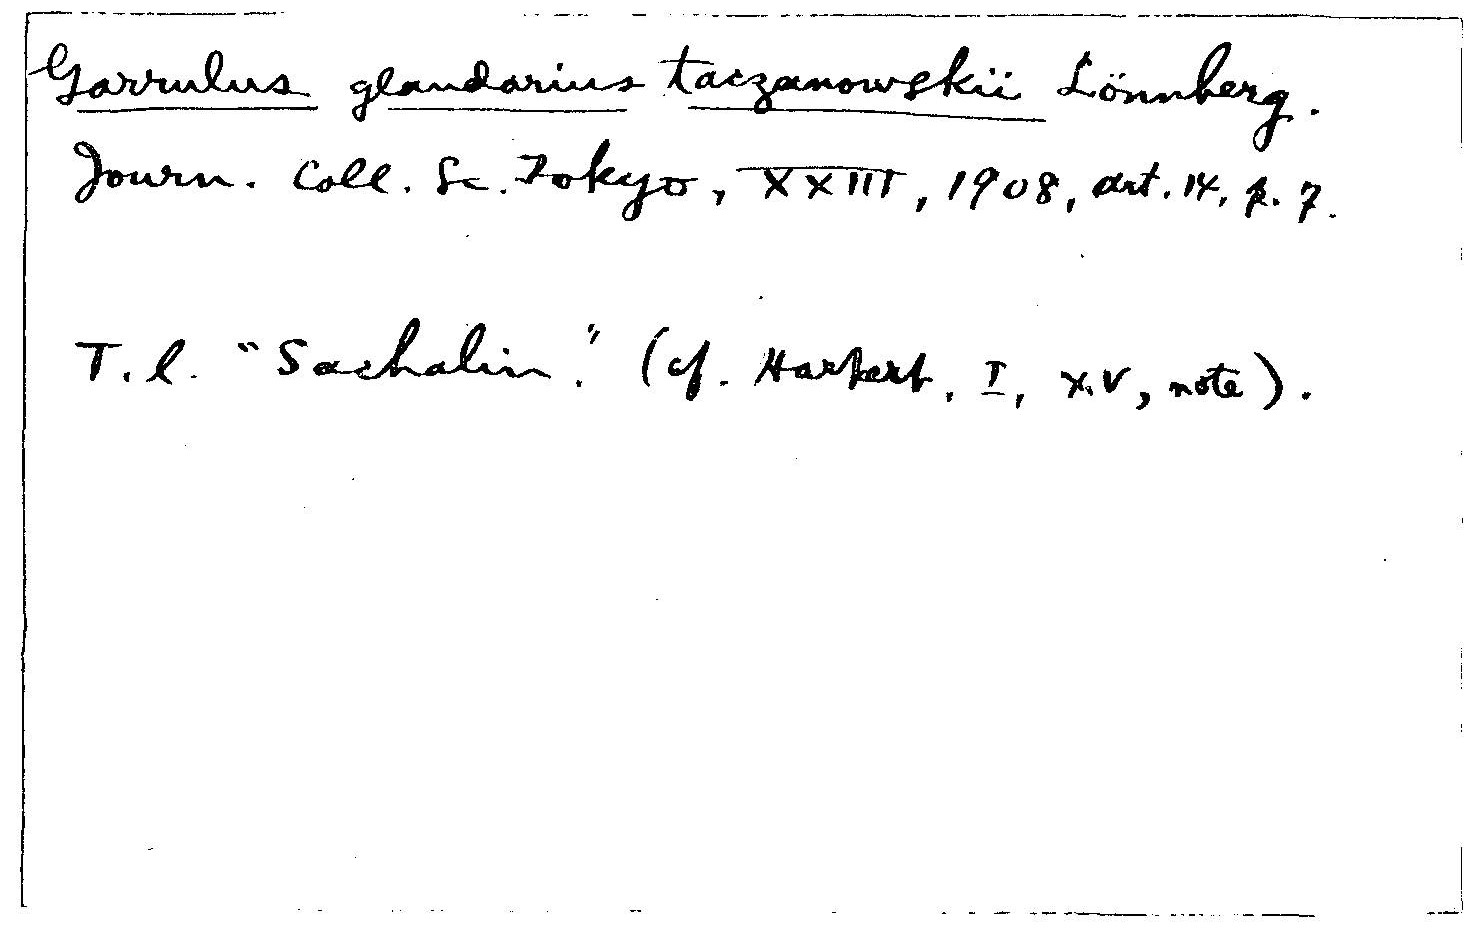 Garrulus glandarius taczanowskii Lönnberg.
Journ. Coll. Sc. Tokyo, XXIII, 1908, art. 14, p. 7.
T. l. "Sachalin." (cf. Hartert, I, XV, note).